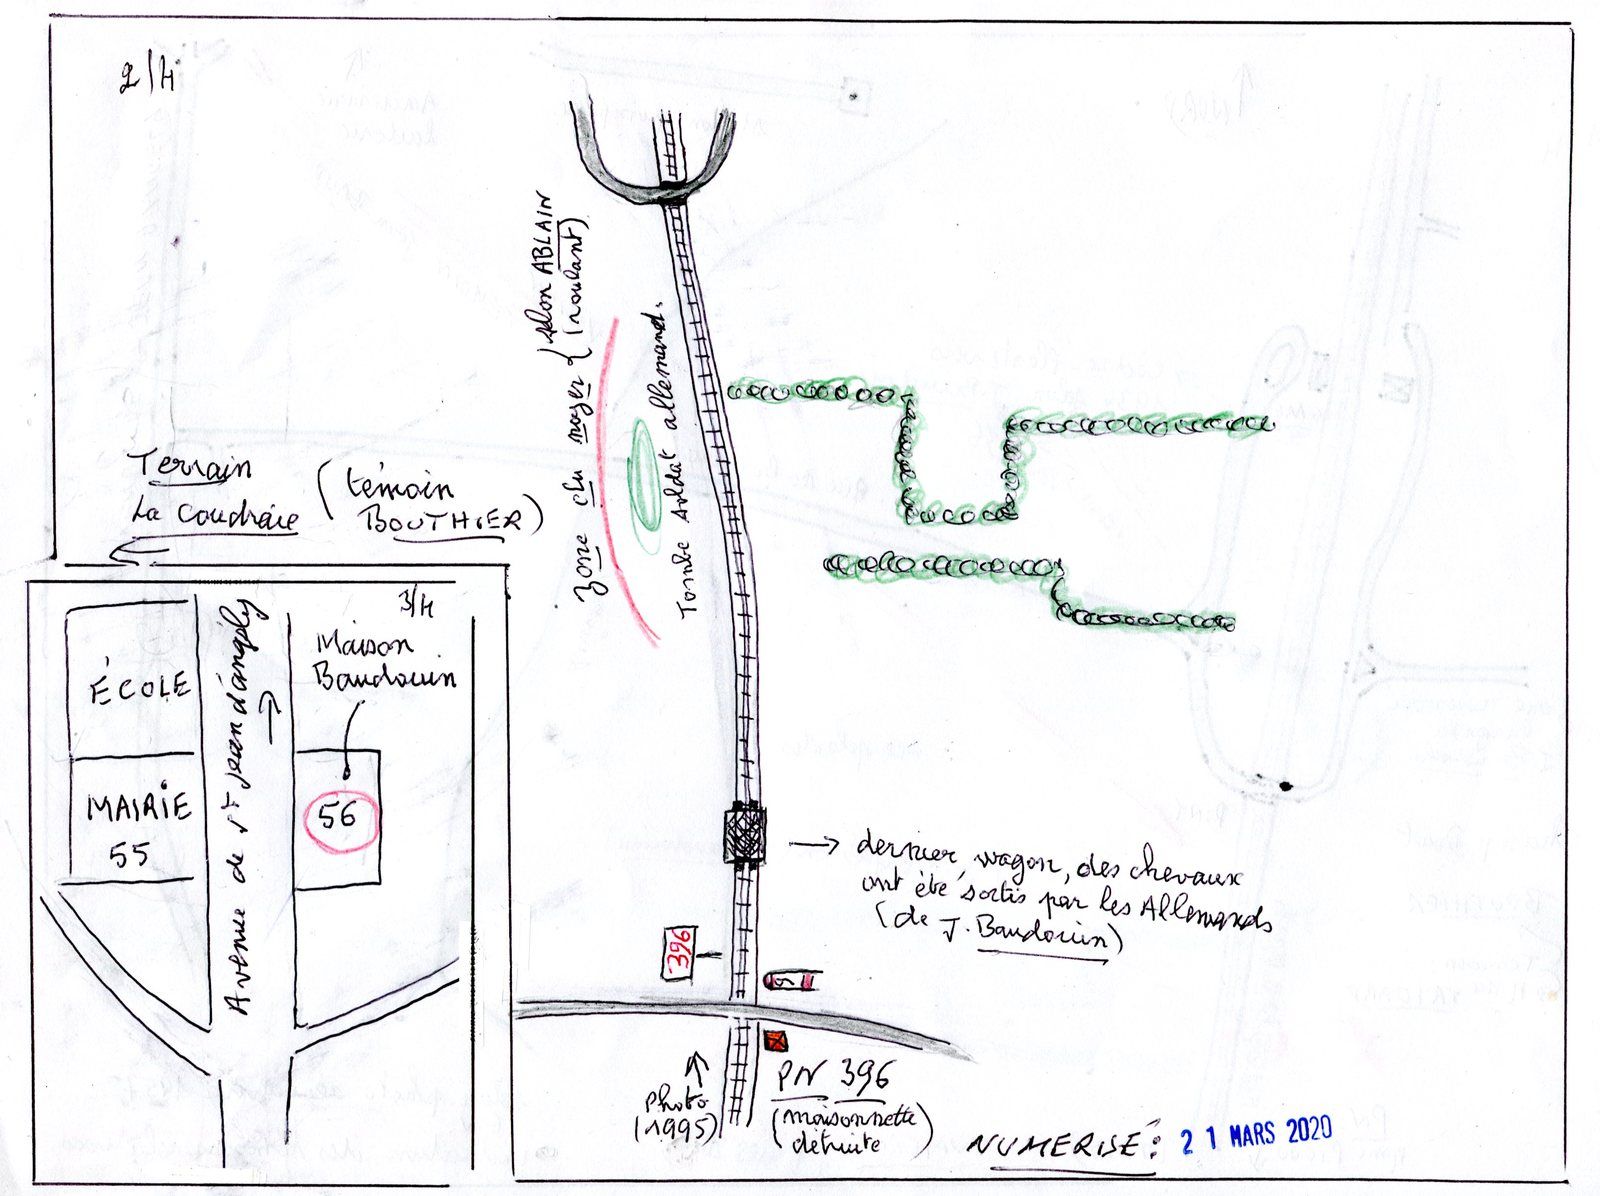 2/4
selon ABLAIN
(roulant)
Zone du noyer
Tombe soldat allemand.
Terrain
La Coudraie
(témoin
BOUTHIER)
3/4
ÉCOLE
MAIRIE
55
Avenue de St Jean d'angély
Maison
Baudouin
56
dernier wagon, des chevaux
ont été sortis par les Allemands
(de J. Baudouin)
396
PN 396
(maisonnette
détruite)
Photo
(1995)
NUMERISÉ: 21 MARS 2020